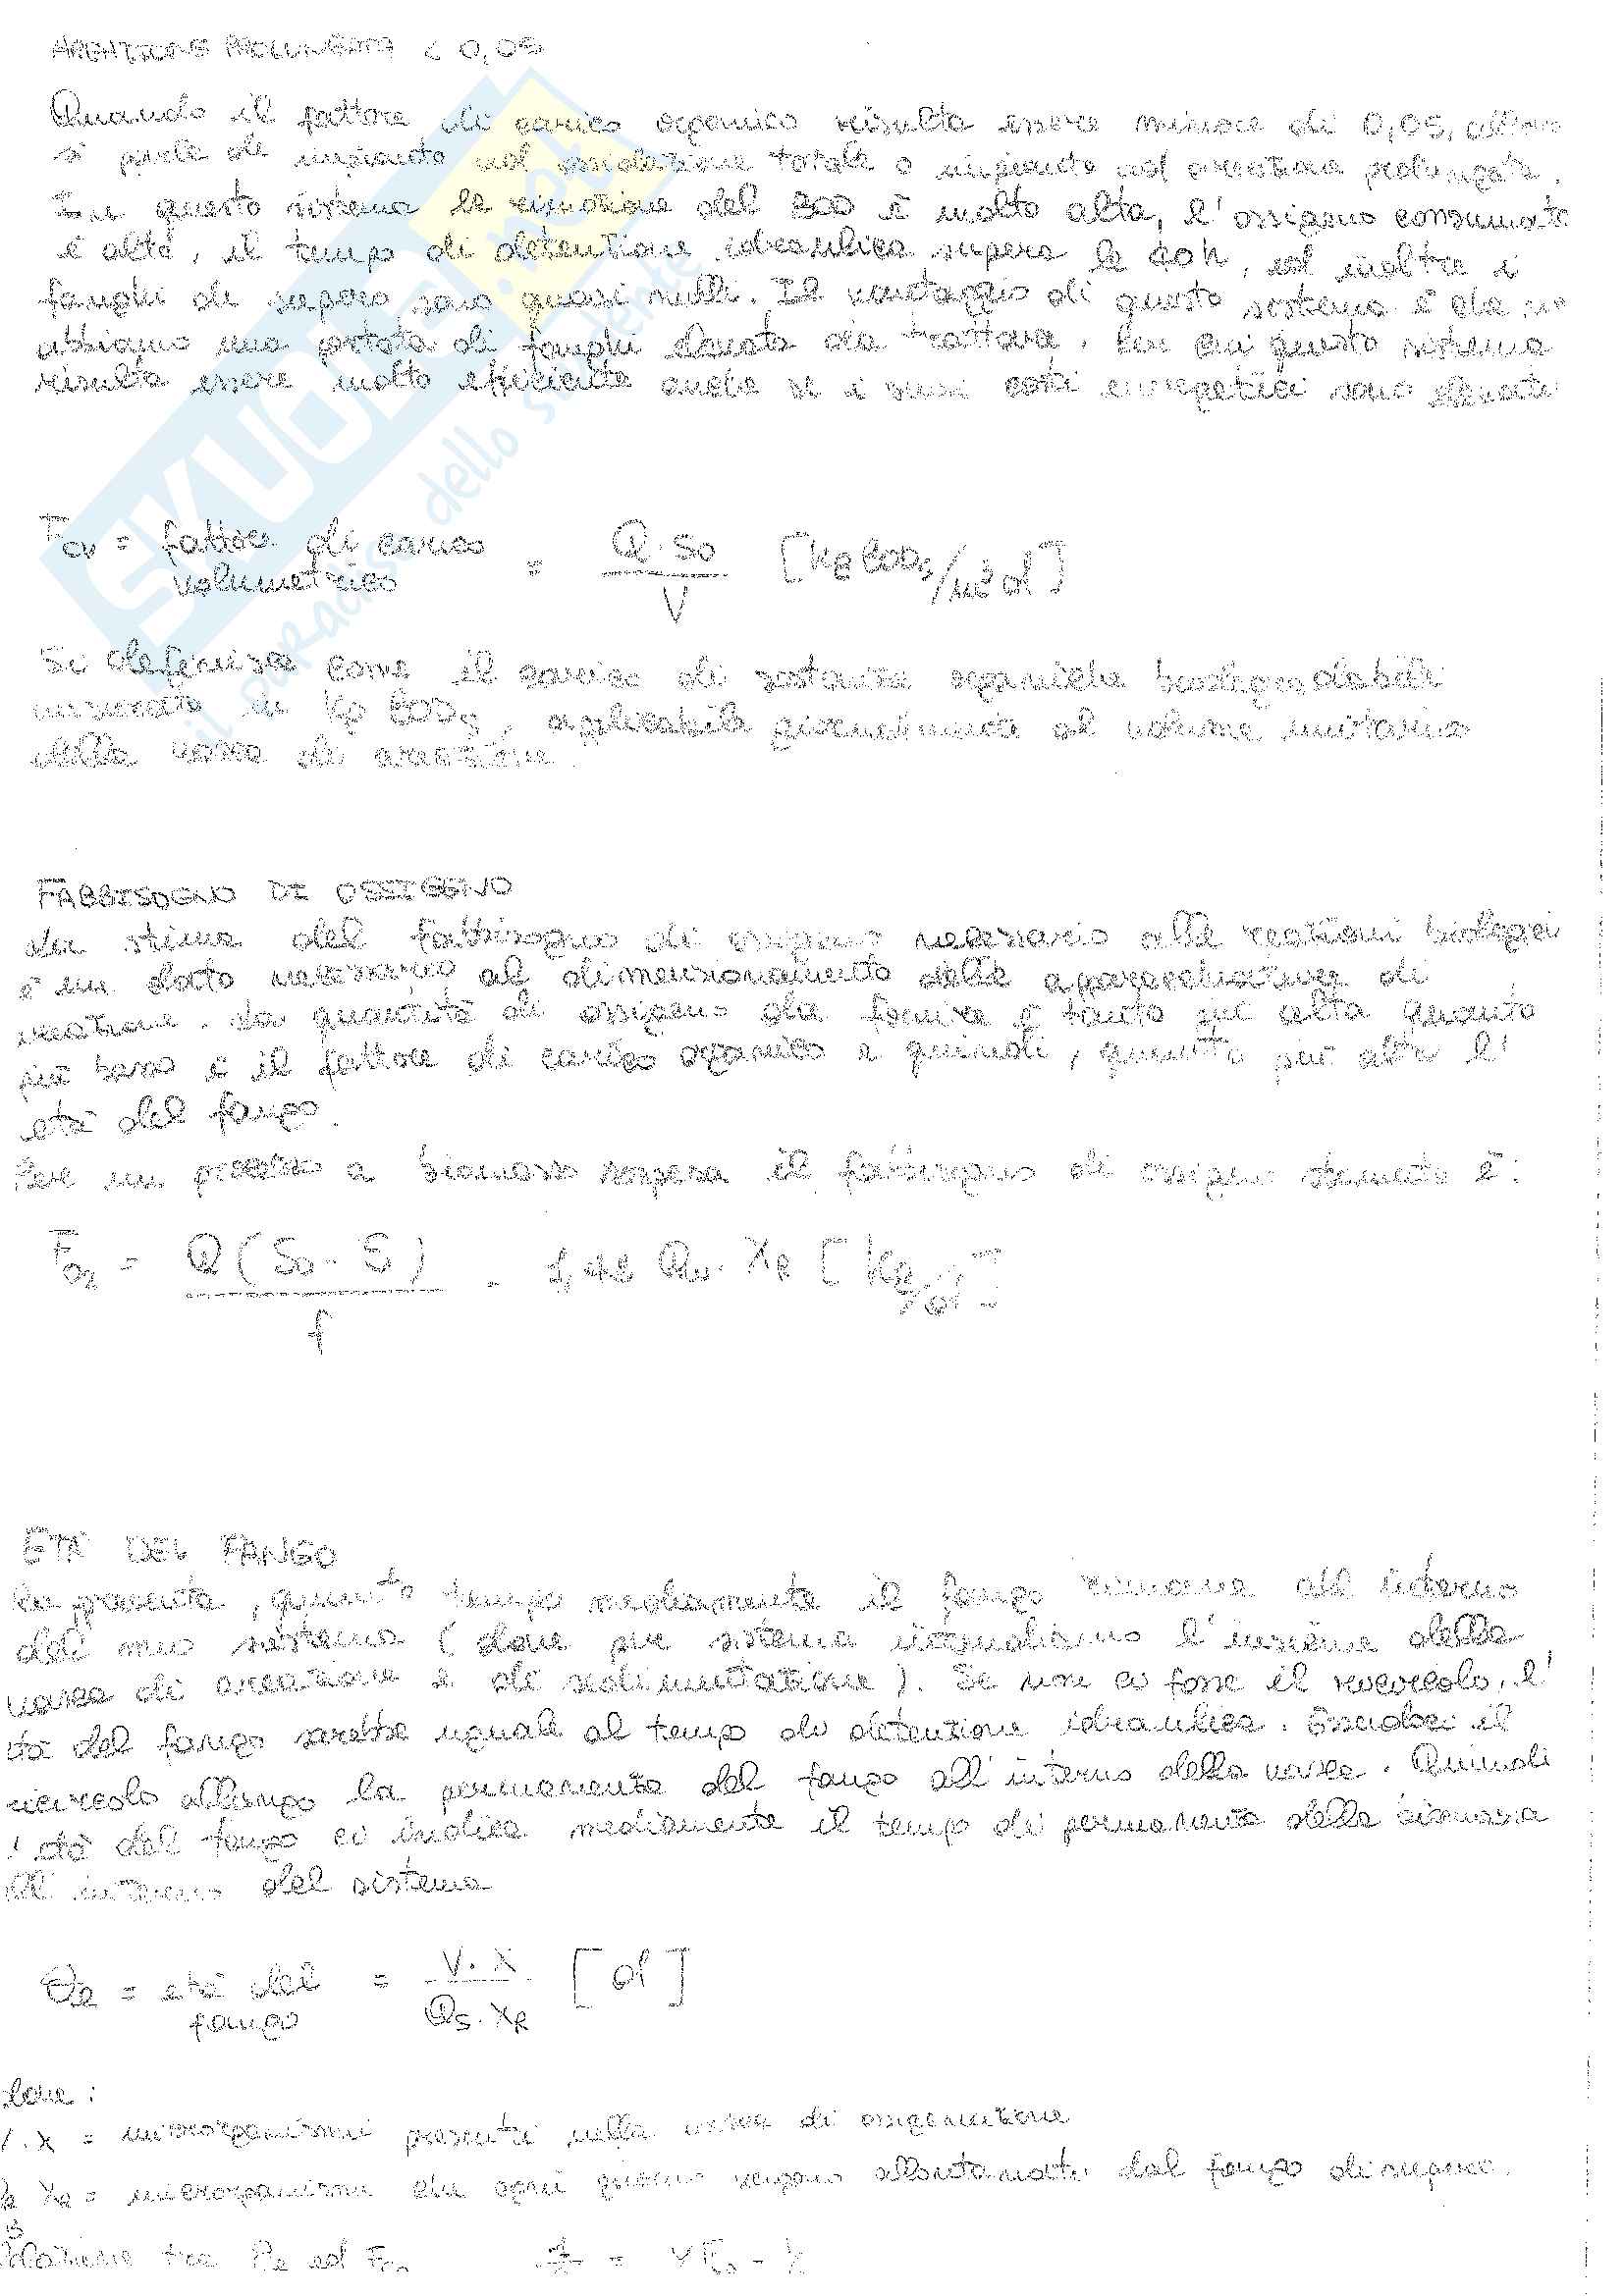 AREAZIONE PROLUNGATA < 0,05
Quando il fattore di carico organico risulta essere minore di 0,05, allora
si parla di impianto ad ossidazione totale o impianto ad areazione prolungata.
In questo sistema la rimozione del BOD è molto alta, l'ossigeno consumato
è alto, il tempo di detenzione idraulica supera le 40h, ed inoltre i
fanghi di supero sono quasi nulli. Il vantaggio di questo sistema è che
abbiamo una portata di fanghi da trattare. Per cui questo sistema
risulta essere molto efficiente anche se i suoi costi energetici sono elevati
SKUOLA.net
il paradiso dello studente
Fcv = fattore di carico volumetrico = Q·S0 / V [Kg BOD5/m³d]
Si definisce come il carico di sostanza organiche biodegradabili
misurato in Kg BOD5, applicabile giornalmente al volume unitario
della vasca di areazione.
FABBISOGNO DI OSSIGENO
La stima del fabbisogno di ossigeno necessario alle reazioni biologi
è un dato necessario al dimensionamento delle apparecchiature di
areazione. La quantità di ossigeno da fornire è tanto più alta quanto
più basso è il fattore di carico organico e quindi, quanto più alta l'
età del fango.
Per un processo a biomassa sospesa il fabbisogno di ossigeno stimato è:
FO2 = Q(S0 - S) / f - 1,42 Qw · XR [Kg/d]
ETÀ DEL FANGO
Rappresenta, quanto tempo mediamente il fango rimane all'interno
del mio sistema (dove per sistema intendiamo l'insieme della
vasca di areazione e di sedimentazione). Se non ci fosse il ricircolo, l'
tà del fango sarebbe uguale al tempo di detenzione idraulica. Essendoci il
ricircolo allungo la permanenza del fango all'interno della vasca. Quindi
l'età del fango ci indica mediamente il tempo di permanenza della biomassa
all'interno del sistema
= età del fango = V·X / QS·XR [d]
dove:
V·X = microrganismi presenti nella vasca di ossigenazione
XR = microrganismi che ogni giorno vengono allontanati dal fango di supero.
Relazione tra ed